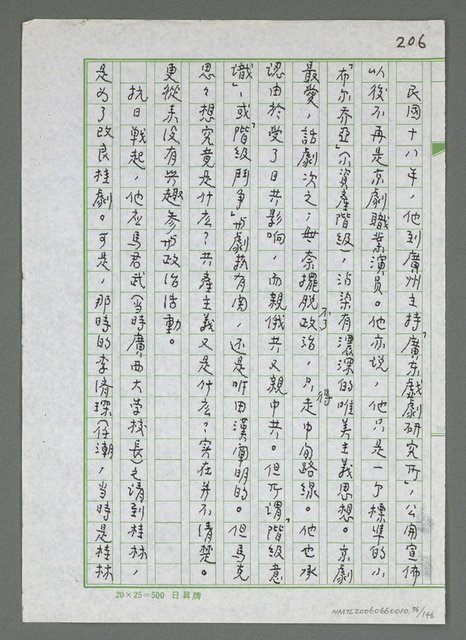 206
民國十八年，他到廣州主持「廣东戲劇研究所」，公開宣佈
以後不再是京劇職業演員。他亦説，他只是一个標準的小
「布尔乔亞」(小資產階級)，沾染有濃深的唯美主義思想。京劇
最愛，話劇次之；無奈擺脱不了政治，只得走中间路線。他也承
認由於受了日共影响，而親俄共又親中共。但所谓「階級意
識」，或「階級鬥争」与劇藝有関，还是唯田漢闡明的。但馬克
思々想究竟是什么？共產主義又是什么？实在并不清楚。
更從来没有兴趣参与政治活動。
抗日戰起，他应馬君武(当時廣西大学校長)之请到桂林，
是为了改良桂劇。可是，那時的李濟琛(任潮，当時是桂林
20×25=500 日昇牌
NMTL20060660010.96/146